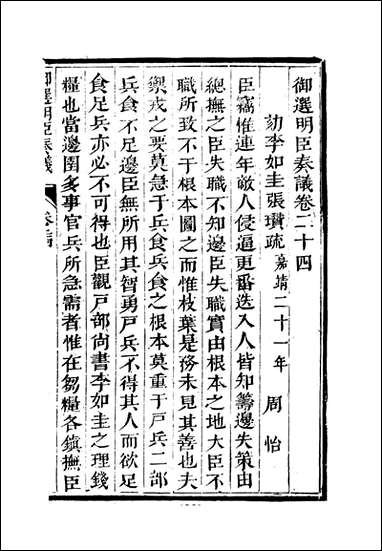 御選明臣奏議卷二十四
劾李如圭張瓚疏嘉靖二十一年　周怡
臣竊惟連年敵人侵逼更番迭入人皆知籌邊失策由
總撫之臣失職不知邊臣失職實由根本之地大臣不
職所致不于根本圖之而惟枝葉是務未見其善也夫
禦戎之要莫急于兵食兵食之根本莫重于戸兵二部
兵食不足邊臣無所用其智勇戸兵不得其人而欲足
食足兵亦必不可得也臣觀戸部尚書李如圭之理錢
糧也當邊圉多事官兵所急需者惟在芻糧各鎮撫臣
御選明臣奏議